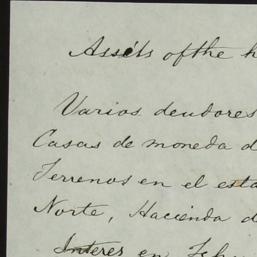 Assets of the h
Varios deudores
Casas de moneda d
Terrenos en el esta
Norte, Hacienda d
Interes en Tehu